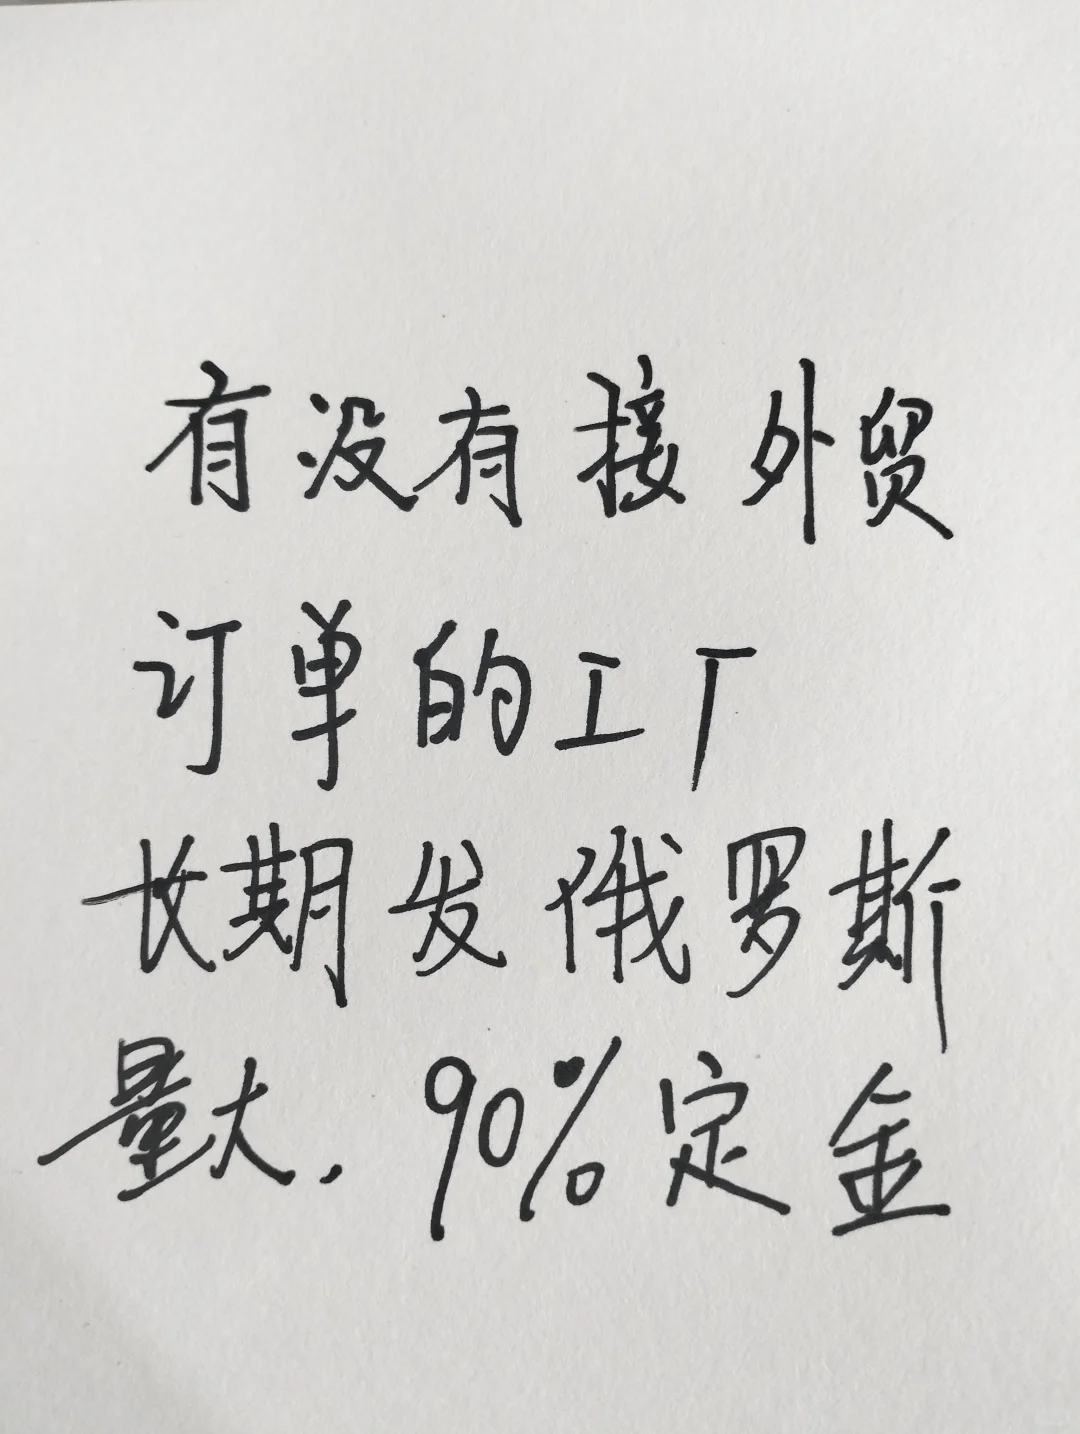 有没有接外贸
订单的工厂
长期发俄罗斯
量大.90%定金